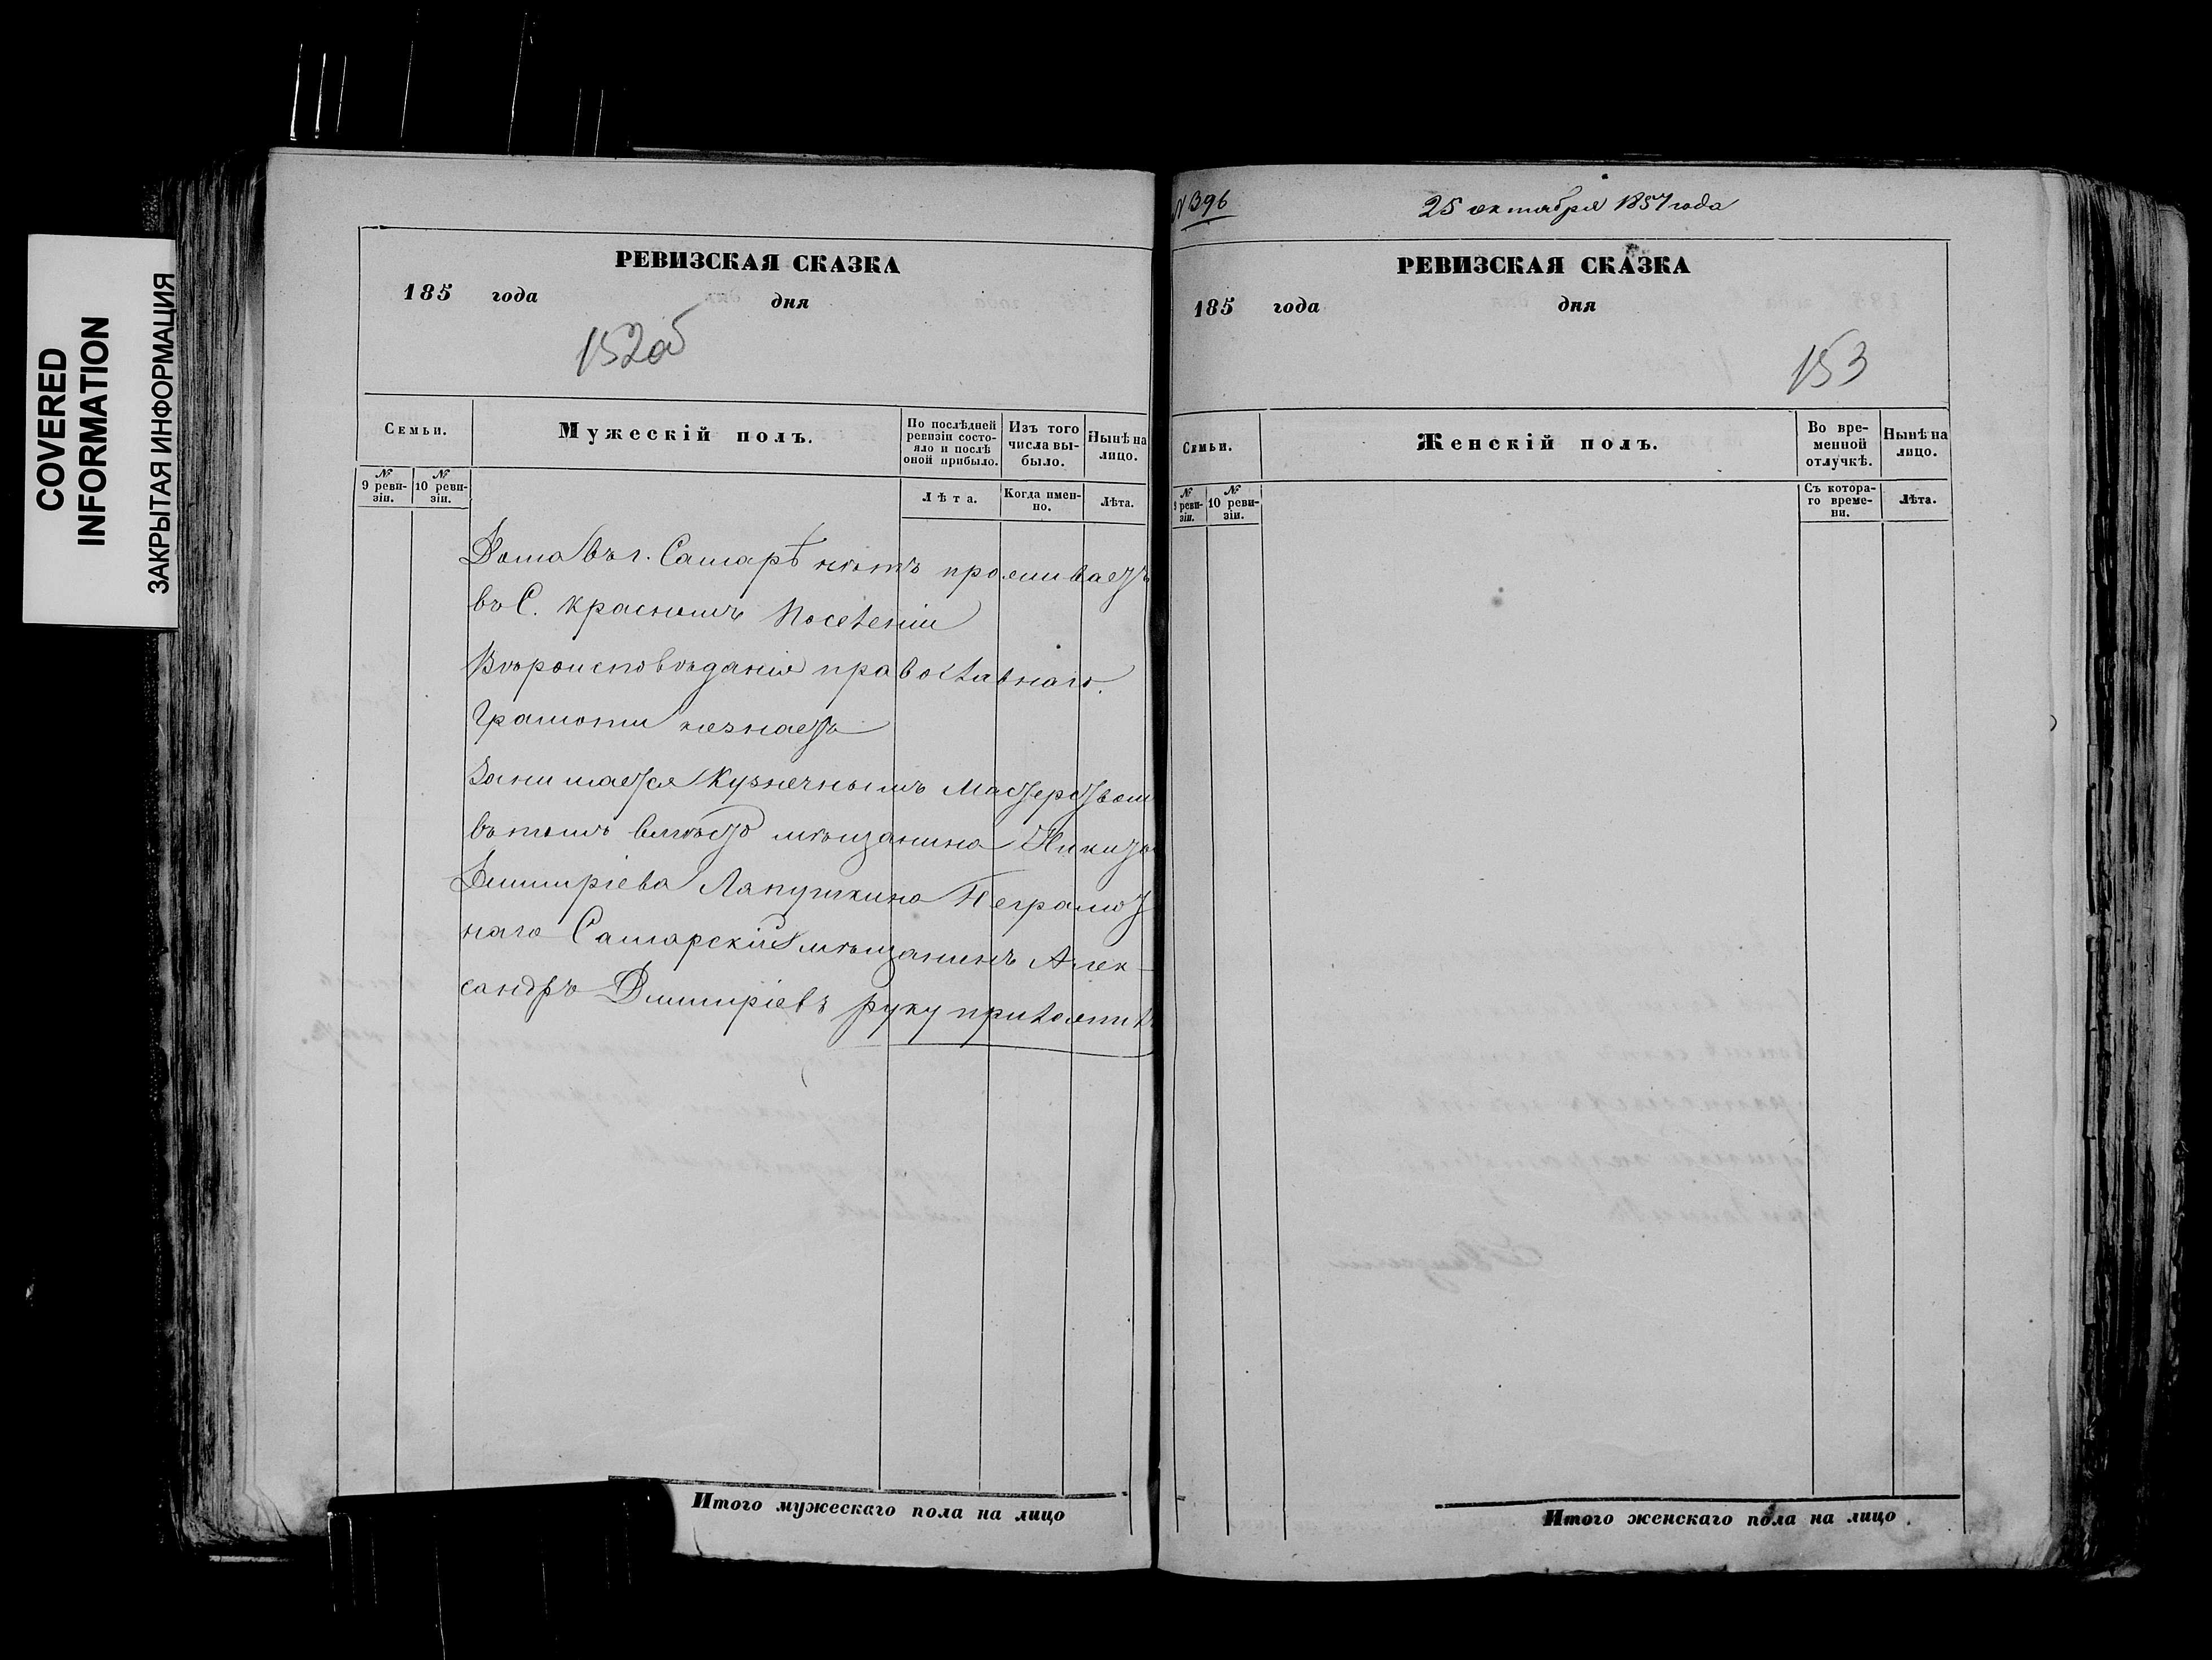 COVERED
INFORMATION
ЗАКРЫТАЯ ИНФОРМАЦИЯ
РЕВИЗСКАЯ СКАЗКА
185 года дня
152об
Семьи.
Мужескій полъ.
По послѣдней ревизіи состояло и послѣ оной прибыло.
Изъ того числа выбыло.
Нынѣ на лицо.
№ 9 ревизіи.
№ 10 ревизіи.
Лѣта.
Когда именно.
Лѣта.
Дома въ г. Самарѣ нѣтъ проживаетъ
въ С. Красномъ Поселеніи
Вѣроисповѣданія православнаго.
Грамоти незнаетъ
Занимается Кузнечнымъ Мастерством
въ томъ вмѣсто мѣщанина Никиты
Дмитріева Лапушкина Неграмот
наго Самарскій мѣщанинъ Алек-
сандръ Дмитріевъ руку приложилъ
Итого мужескаго пола на лицо
№ 396
25 октября 1857 года
РЕВИЗСКАЯ СКАЗКА
185 года дня
153
Семьи.
Женскій полъ.
Во временной отлучкѣ.
Нынѣ на лицо.
№ 9 ревизіи.
№ 10 ревизіи.
Съ котораго времени.
Лѣта.
Итого женскаго пола на лицо